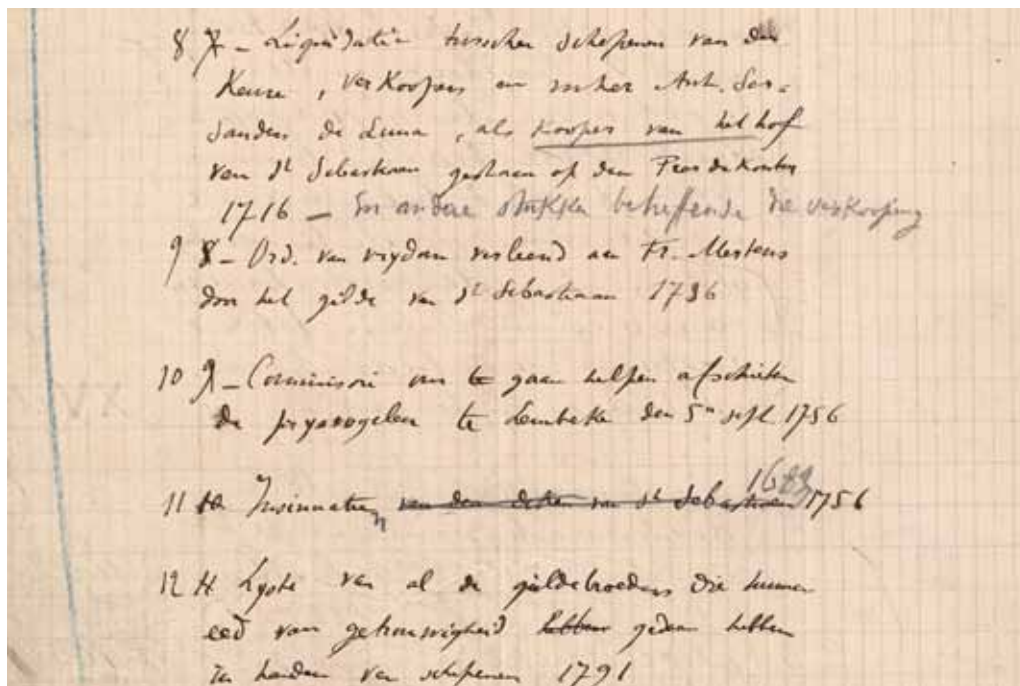 8 7 - Liquidatie tusschen schepenen van der
Keure, verkoopers en joncker Anth. Ser-
sanders de Luna, als Kooper van het hof
van St Sebastiaan gestaan op den Peerdekouter
1716 - En andere stukken betreffende de verkooping
9 8 - Ord. van vrydom verleend aan Fr. Mertens
door het gilde van St Sebastiaan 1736
10 9 - Commissie om te gaan helpen afschieten
de prysvogelen te Lembeke den 5n sept. 1756
1683
11 10 Insinuatien van den deken van St Sebastiaan 1756
12 11 Lyste van al de guldebroeders die hunnen
eed van getrouwigheid hebben gedaan hebben
in handen van schepenen 1791